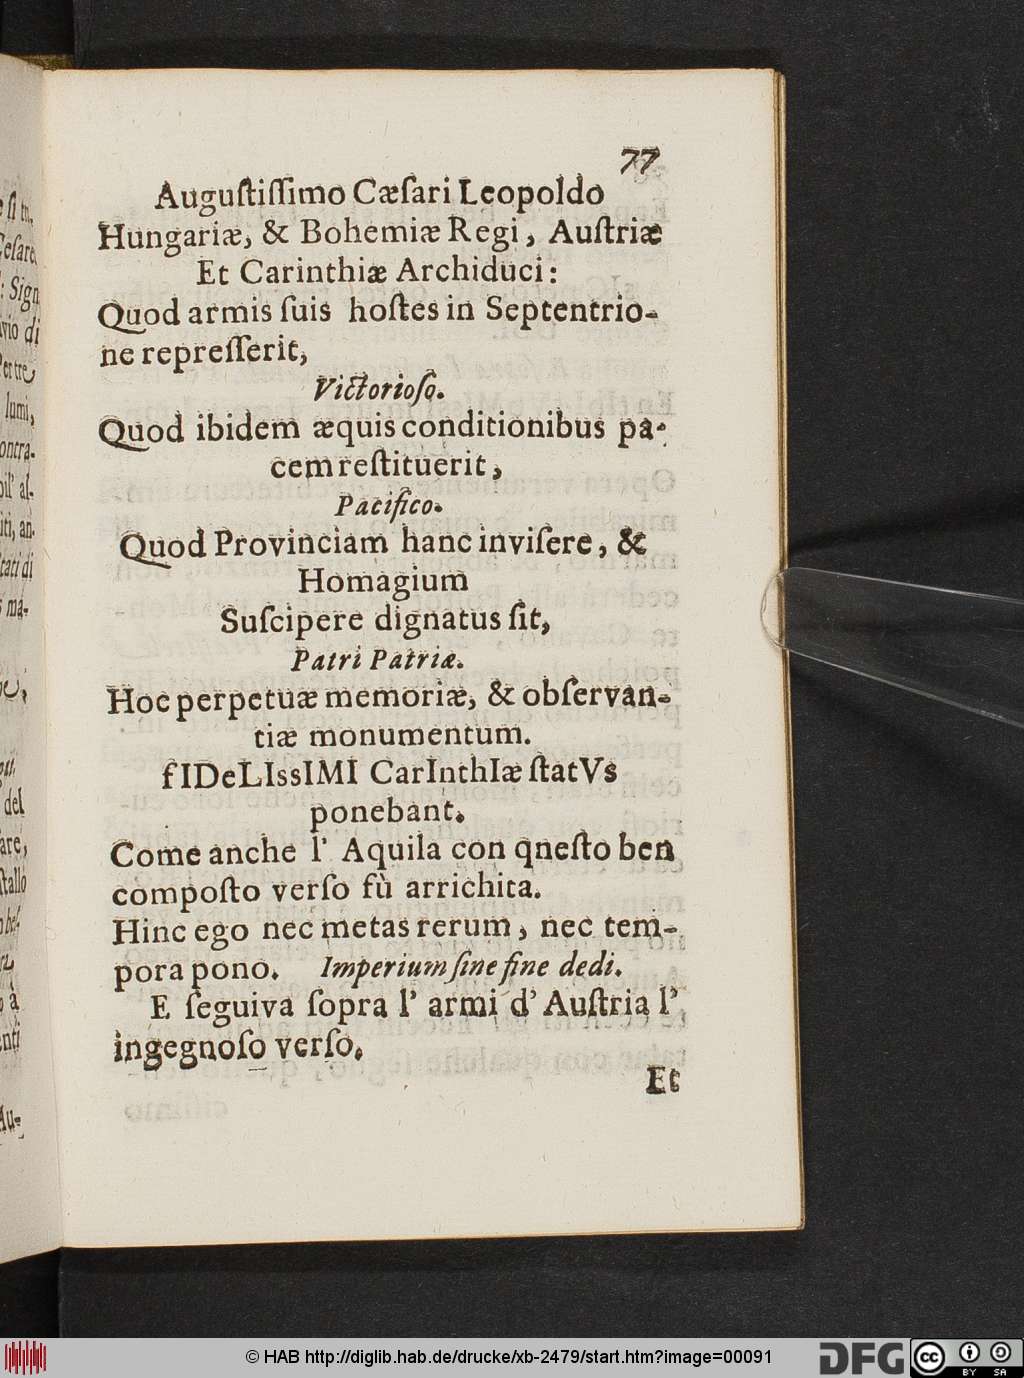 77
Auguſtiſſimo Cæſari Leopoldo
Hungariæ, & Bohemiæ Regi, Auſtriæ
Et Carinthiæ Archiduci:
Quod armis ſuis hoſtes in Septentrio-
ne repreſſerit,
Victorioſo.
Quod ibidem æquis conditionibus pa-
cem reſtituerit,
Pacifico.
Quod Provinciam hanc inviſere, &
Homagium
Suſcipere dignatus ſit,
Patri Patriæ.
Hoc perpetuæ memoriæ, & obſervan-
tiæ monumentum.
fIDeLIssIMI CarInthIæ ſtatVs
ponebant.
Come anche l' Aquila con qneſto ben
compoſto verſo fù arrichita.
Hinc ego nec metas rerum, nec tem-
pora pono. Imperium ſine fine dedi.
E ſeguiva ſopra l' armi d' Auſtria l'
ingegnoſo verſo.
Et
© HAB http://diglib.hab.de/drucke/xb-2479/start.htm?image=00091
DFG
cc BY SA